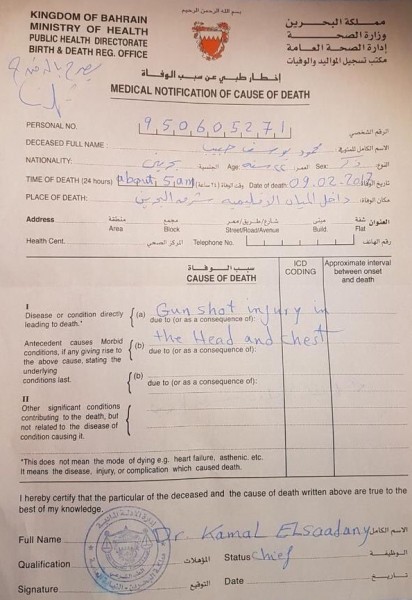 بسم الله الرحمن الرحيم
KINGDOM OF BAHRAIN
MINISTRY OF HEALTH
PUBLIC HEALTH DIRECTORATE
BIRTH & DEATH REG. OFFICE
مملكة البحرين
وزارة الصحة
إدارة الصحة العامة
مكتب تسجيل المواليد والوفيات
إخطار طبي عن سبب الوفاة
MEDICAL NOTIFICATION OF CAUSE OF DEATH
PERSONAL NO. 950605271 الرقم الشخصي
DECEASED FULL NAME : محمود يوسف حبيب الاسم الكامل للمتوفى
NATIONALITY: بحريني الجنسية Age: ٢٢ سنه العمر Sex: ذكر النوع
TIME OF DEATH (24 hours) about 5 am وقت الوفاة (٢٤ ساعة) Date of death 09.02.2017 تاريخ الوفاة
PLACE OF DEATH: داخل المياه الاقليميه شرق البحرين مكان الوفاة:
Address منطقة Area مجمع Block شارع/طريق/ممر Street/Road/Avenue مبنى Build. شقة Flat العنوان
Health Cent. المركز الصحي Telephone No. رقم الهاتف
سبب الوفاة
CAUSE OF DEATH
ICD CODING
Approximate interval between onset and death
I
Disease or condition directly leading to death.*
(a) Gun shot injury in
due to (or as a consequence of):
Antecedent causes Morbid conditions, if any giving rise to the above cause, stating the underlying conditions last.
(b) the Head and chest
due to (or as a consequence of):
(b)
due to (or as a consequence of):
II
Other significant conditions contributing to the death, but not related to the disease of condition causing it.
*This does not mean the mode of dying e.g. heart failure, asthenic, etc.
It means the disease, injury, or complication which caused death.
I hereby certify that the particular of the deceased and the cause of death written above are true to the best of my knowledge.
Full Name Dr. Kamal Elsaadany الاسم الكامل
Qualification المؤهلات Status chief الوظيفة
Signature التوقيع Date تاريخ